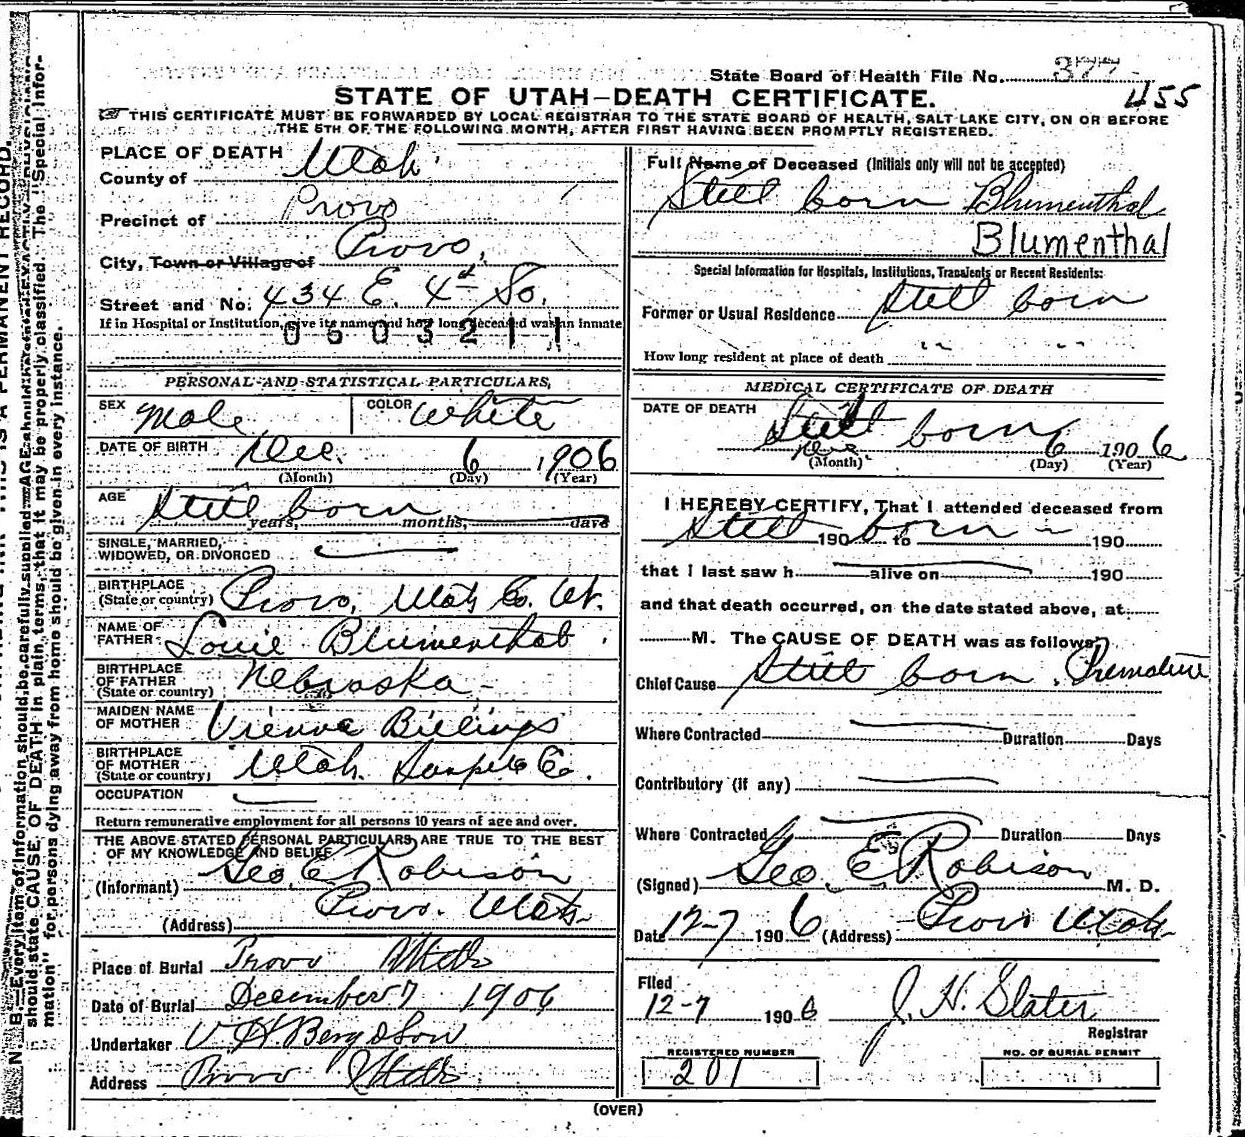 State Board of Health File No. 377
455
STATE OF UTAH—DEATH CERTIFICATE.
THIS CERTIFICATE MUST BE FORWARDED BY LOCAL REGISTRAR TO THE STATE BOARD OF HEALTH, SALT LAKE CITY, ON OR BEFORE
THE 5TH OF THE FOLLOWING MONTH, AFTER FIRST HAVING BEEN PROMPTLY REGISTERED.
PLACE OF DEATH
County of Utah
Precinct of Provo
City, Town or Village of Provo,
Street and No. 434 E. 4th So.
If in Hospital or Institution, give its name and how long deceased was an inmate
0603211
PERSONAL AND STATISTICAL PARTICULARS,
SEX Male COLOR White
DATE OF BIRTH Dec. 6 1906
(Month) (Day) (Year)
AGE Still born
years, months, days
SINGLE, MARRIED,
WIDOWED, OR DIVORCED
BIRTHPLACE
(State or country) Provo, Utah Co. Ut.
NAME OF
FATHER Louie Blumenthal
BIRTHPLACE
OF FATHER
(State or country) Nebraska
MAIDEN NAME
OF MOTHER Vienna Billings
BIRTHPLACE
OF MOTHER
(State or country) Utah. Sanpete Co.
OCCUPATION
Return remunerative employment for all persons 10 years of age and over.
THE ABOVE STATED PERSONAL PARTICULARS ARE TRUE TO THE BEST
OF MY KNOWLEDGE AND BELIEF
(Informant) Geo. E Robison
(Address) Provo. Utah
Place of Burial Provo Utah
Date of Burial December 7 1906
Undertaker V H. Berg & Son
Address Provo Utah
Full Name of Deceased (Initials only will not be accepted)
Still born Blumenthal
Blumenthal
Special Information for Hospitals, Institutions, Transients or Recent Residents:
Former or Usual Residence Still born
How long resident at place of death " "
MEDICAL CERTIFICATE OF DEATH
DATE OF DEATH
Still born
Dec 6 1906
(Month) (Day) (Year)
I HEREBY CERTIFY, That I attended deceased from
Still 190 born to 190
that I last saw h alive on 190
and that death occurred, on the date stated above, at
M. The CAUSE OF DEATH was as follows:
Chief Cause Still born. Premature
Where Contracted Duration Days
Contributory (if any)
Where Contracted Duration Days
(Signed) Geo. E Robison M. D.
Date 12-7 1906 (Address) Provo Utah
Filed
12-7 1906 J. H. Slater
Registrar
REGISTERED NUMBER
201
NO. OF BURIAL PERMIT
(OVER)
N. B.—Every item of information should be carefully supplied. AGE should be stated EXACTLY.
should state CAUSE OF DEATH in plain terms, that it may be properly classified. The "Special Infor-
mation" for persons dying away from home should be given in every instance.
THIS IS A PERMANENT RECORD.